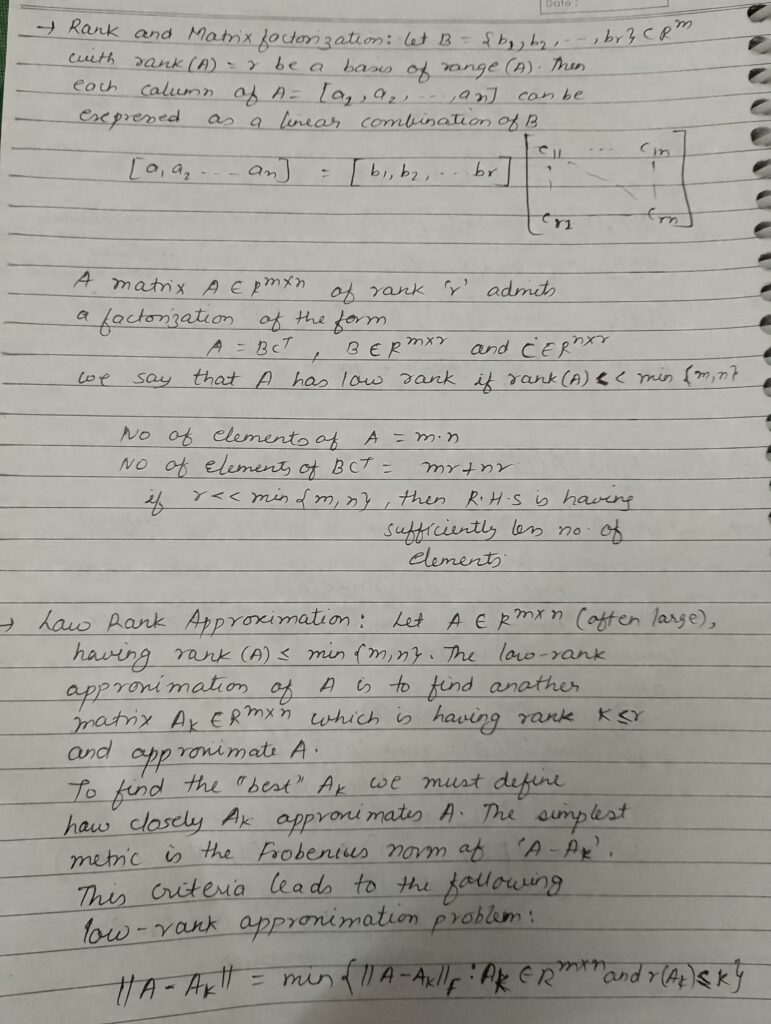 Date:
→ Rank and Matrix factorization: let B = {b1, b2, ---, br} ⊂ R^m
with rank(A) = r be a basis of range (A). Then
each column of A = [a1, a2, ..., an] can be
exepressed as a linear combination of B
[a1 a2 --- an] = [b1, b2, ... br] [c11 ... c1n
cr1 crn]
A matrix A ∈ R^m×n of rank 'r' admits
a factorization of the form
A = BC^T , B ∈ R^m×r and C ∈ R^n×r
we say that A has low rank if rank(A) << min {m,n}
No of elements of A = m.n
No of elements of BC^T = mr+nr
if r << min {m, n}, then R.H.S is having
sufficiently less no. of
elements
→ Low Rank Approximation: Let A ∈ R^m×n (often large),
having rank (A) ≤ min {m,n}. The low-rank
approximation of A is to find another
matrix Ak ∈ R^m×n which is having rank k≤r
and approximate A.
To find the "best" Ak we must define
how closely Ak approximates A. The simplest
metric is the Frobenius norm of 'A-Ak'.
This criteria leads to the following
low-rank approximation problem:
||A-Ak|| = min{||A-Ak||F : Ak ∈ R^m×n and r(Ak) ≤ k}